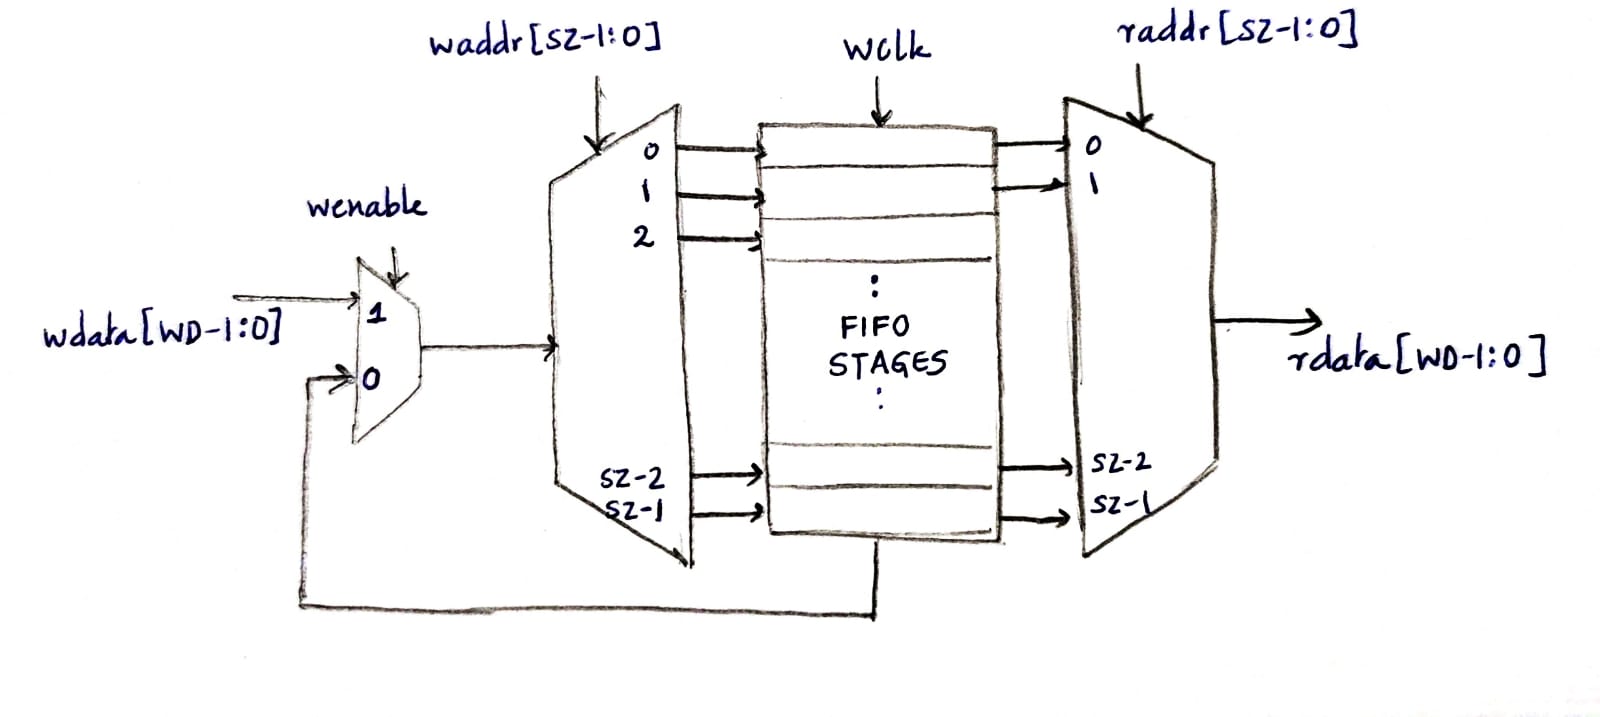 waddr[SZ-1:0]
wclk
raddr[SZ-1:0]
wenable
wdata[WD-1:0]
1
0
0
1
2
SZ-2
SZ-1
:
FIFO
STAGES
:
0
1
SZ-2
SZ-1
rdata[WD-1:0]